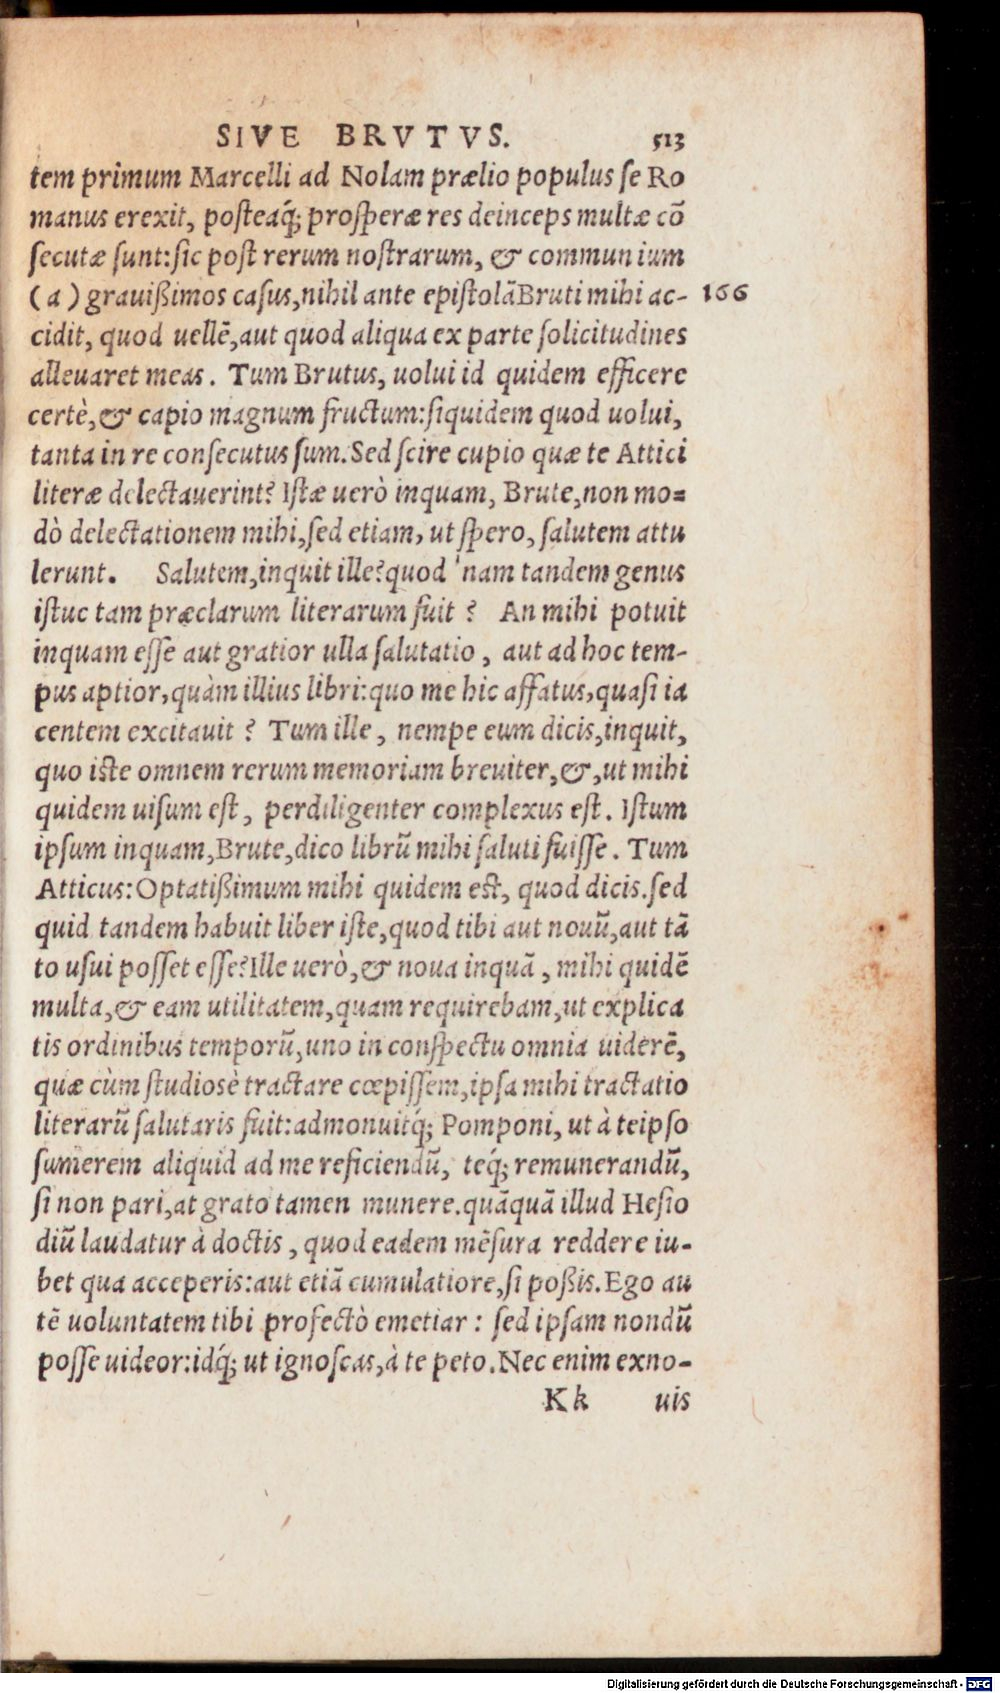 SIVE BRVTVS. 513
tem primum Marcelli ad Nolam prælio populus ſe Ro
manus erexit, poſteaq́; proſperæ res deinceps multæ cõ
ſecutæ ſunt:ſic poſt rerum noſtrarum, & communium
(a) grauißimos caſus,nihil ante epiſtolãBruti mihi ac- 166
cidit, quod uellẽ,aut quod aliqua ex parte ſolicitudines
alleuaret meas. Tum Brutus, uolui id quidem efficere
certè,& capio magnum fructum:ſiquidem quod uolui,
tanta in re conſecutus ſum.Sed ſcire cupio quæ te Attici
literæ delectauerint? Iſtæ uerò inquam, Brute,non mo-
dò delectationem mihi,ſed etiam, ut ſpero, ſalutem attu
lerunt. Salutem,inquit ille?quod'nam tandem genus
iſtuc tam præclarum literarum fuit? An mihi potuit
inquam eſſe aut gratior ulla ſalutatio, aut ad hoc tem-
pus aptior,quàm illius libri:quo me hic affatus,quaſi ia
centem excitauit? Tum ille, nempe eum dicis,inquit,
quo iſte omnem rerum memoriam breuiter,&,ut mihi
quidem uiſum eſt, perdiligenter complexus eſt. Iſtum
ipſum inquam,Brute,dico librũ mihi ſaluti fuiſſe. Tum
Atticus:Optatißimum mihi quidem eſt, quod dicis.ſed
quid tandem habuit liber iſte,quod tibi aut nouũ,aut tã
to uſui poſſet eſſe?Ille uerò,& noua inquã, mihi quidẽ
multa,& eam utilitatem,quam requirebam,ut explica
tis ordinibus temporũ,uno in conſpectu omnia uiderẽ,
quæ cùm ſtudioſè tractare cœpiſſem,ipſa mihi tractatio
literarũ ſalutaris fuit:admonuitq́; Pomponi, ut à teipſo
ſumerem aliquid ad me reficiendũ, teq́; remunerandũ,
ſi non pari,at grato tamen munere.quãquã illud Heſio
diũ laudatur à doctis, quod eadem mẽſura reddere iu-
bet qua acceperis:aut etiã cumulatiore,ſi poßis.Ego au
tẽ uoluntatem tibi profectò emetiar: ſed ipſam nondũ
poſſe uideor:idq́; ut ignoſcas,à te peto.Nec enim exno-
Kk uis
Digitalisierung gefördert durch die Deutsche Forschungsgemeinschaft - DFG